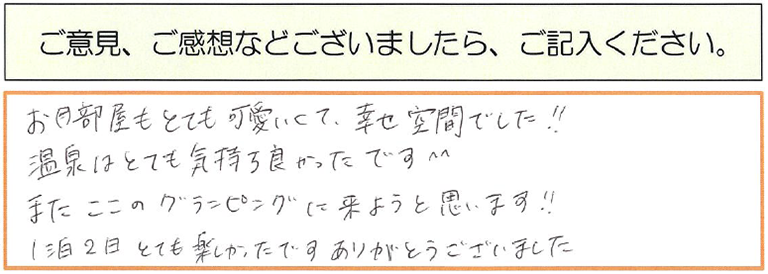 ご意見、ご感想などございましたら、ご記入ください。
お部屋もとても可愛いくて、幸せ空間でした!!
温泉はとても気持ち良かったです^^
またここのグランピングに来ようと思います!!
1泊2日とても楽しかったですありがとうございました